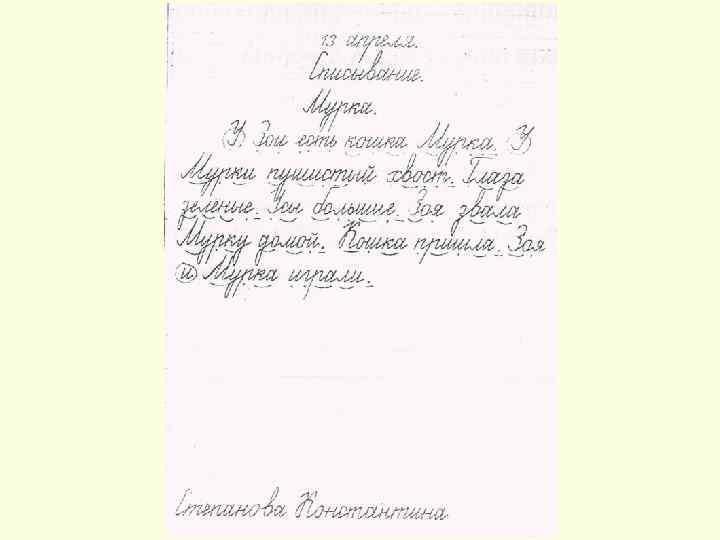 13 апреля.
Списывание.
Мурка.
У Зои есть кошка Мурка. У
Мурки пушистый хвост. Глаза
зеленые. Усы большие. Зоя звала
Мурку домой. Кошка пришла. Зоя
и Мурка играли.
Степанова Константина